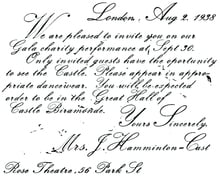 London, Aug 2. 1938
We are pleased to invite you on our
Gala charity performance at Sept 30.
Only invited guests have the oportunity
to see the Castle. Please appear in appro-
priate dancewear. You will be expected
order to be in the Great Hall of
Castle
Yours Sincerely,
Mrs. J. Hamminton-Cast
Rose Theatre, 56 Park St